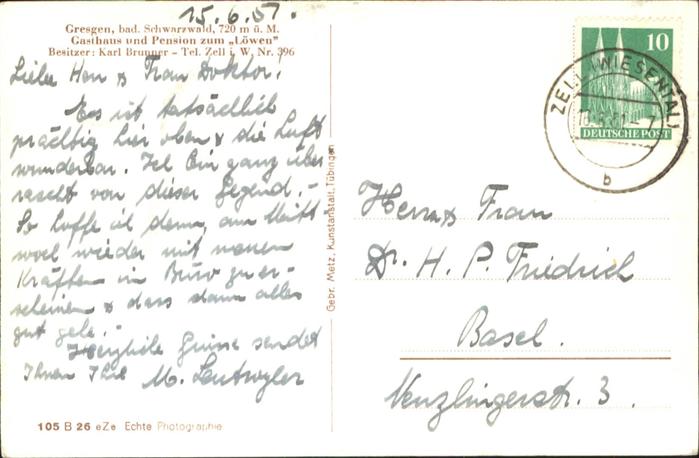 15.6.51.
Gresgen, bad. Schwarzwald, 720 m ü. M.
Gasthaus und Pension zum „Löwen"
Besitzer: Karl Brunner - Tel. Zell i. W. Nr. 396
Liebe Herr & Frau Doktor!
Es ist tatsächlich
prächtig hier oben & die Luft
wunderbar. Ich bin ganz über
rascht von dieser Gegend. -
So hoffe ich denn, am Mitt-
woch wieder mit neuen
Kräften im Büro zu er-
scheinen & dass dann alles
gut gehe. -
Herzliche Grüsse sendet
Ihnen Ihre M. Leutwyler
105 B 26 eZe Echte Photographie
Gebr. Metz, Kunstanstalt, Tübingen
10
DEUTSCHE POST
ZELL (WIESENTAL)
b
Herr & Frau
Dr. H. P. Friedrich
Basel.
Nenzlingerstr. 3.